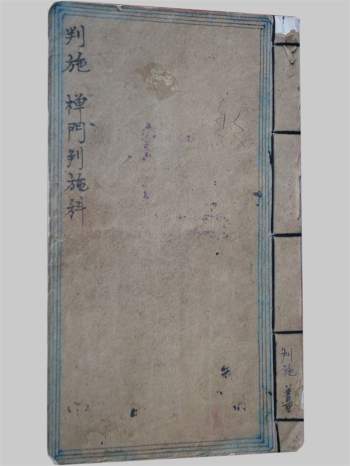 判施
禅門判施科
判施